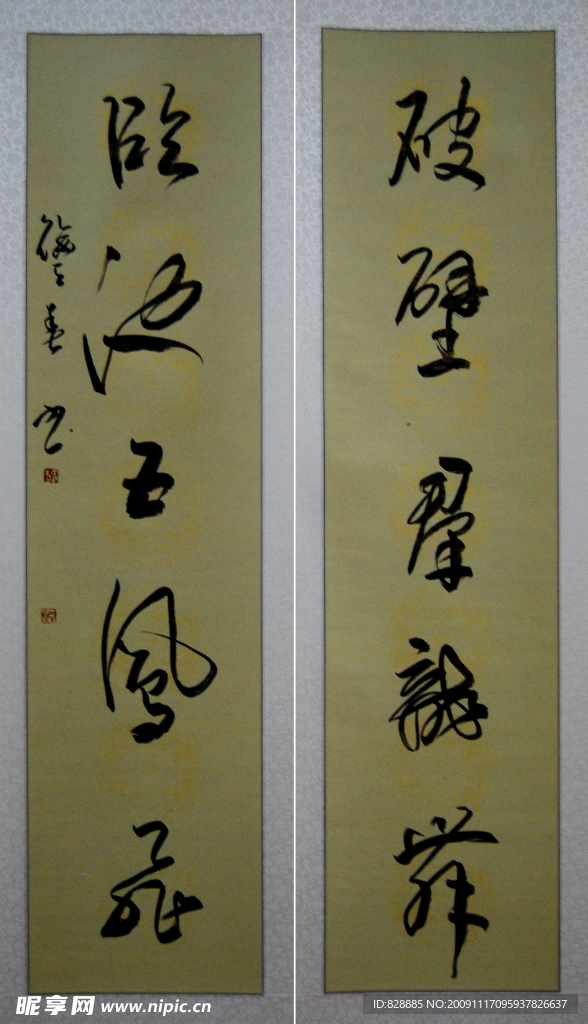 破壁群龍舞
臨池五鳳飛
春書
昵享网 www.nipic.cn
ID:828885 NO:20091117095937826637